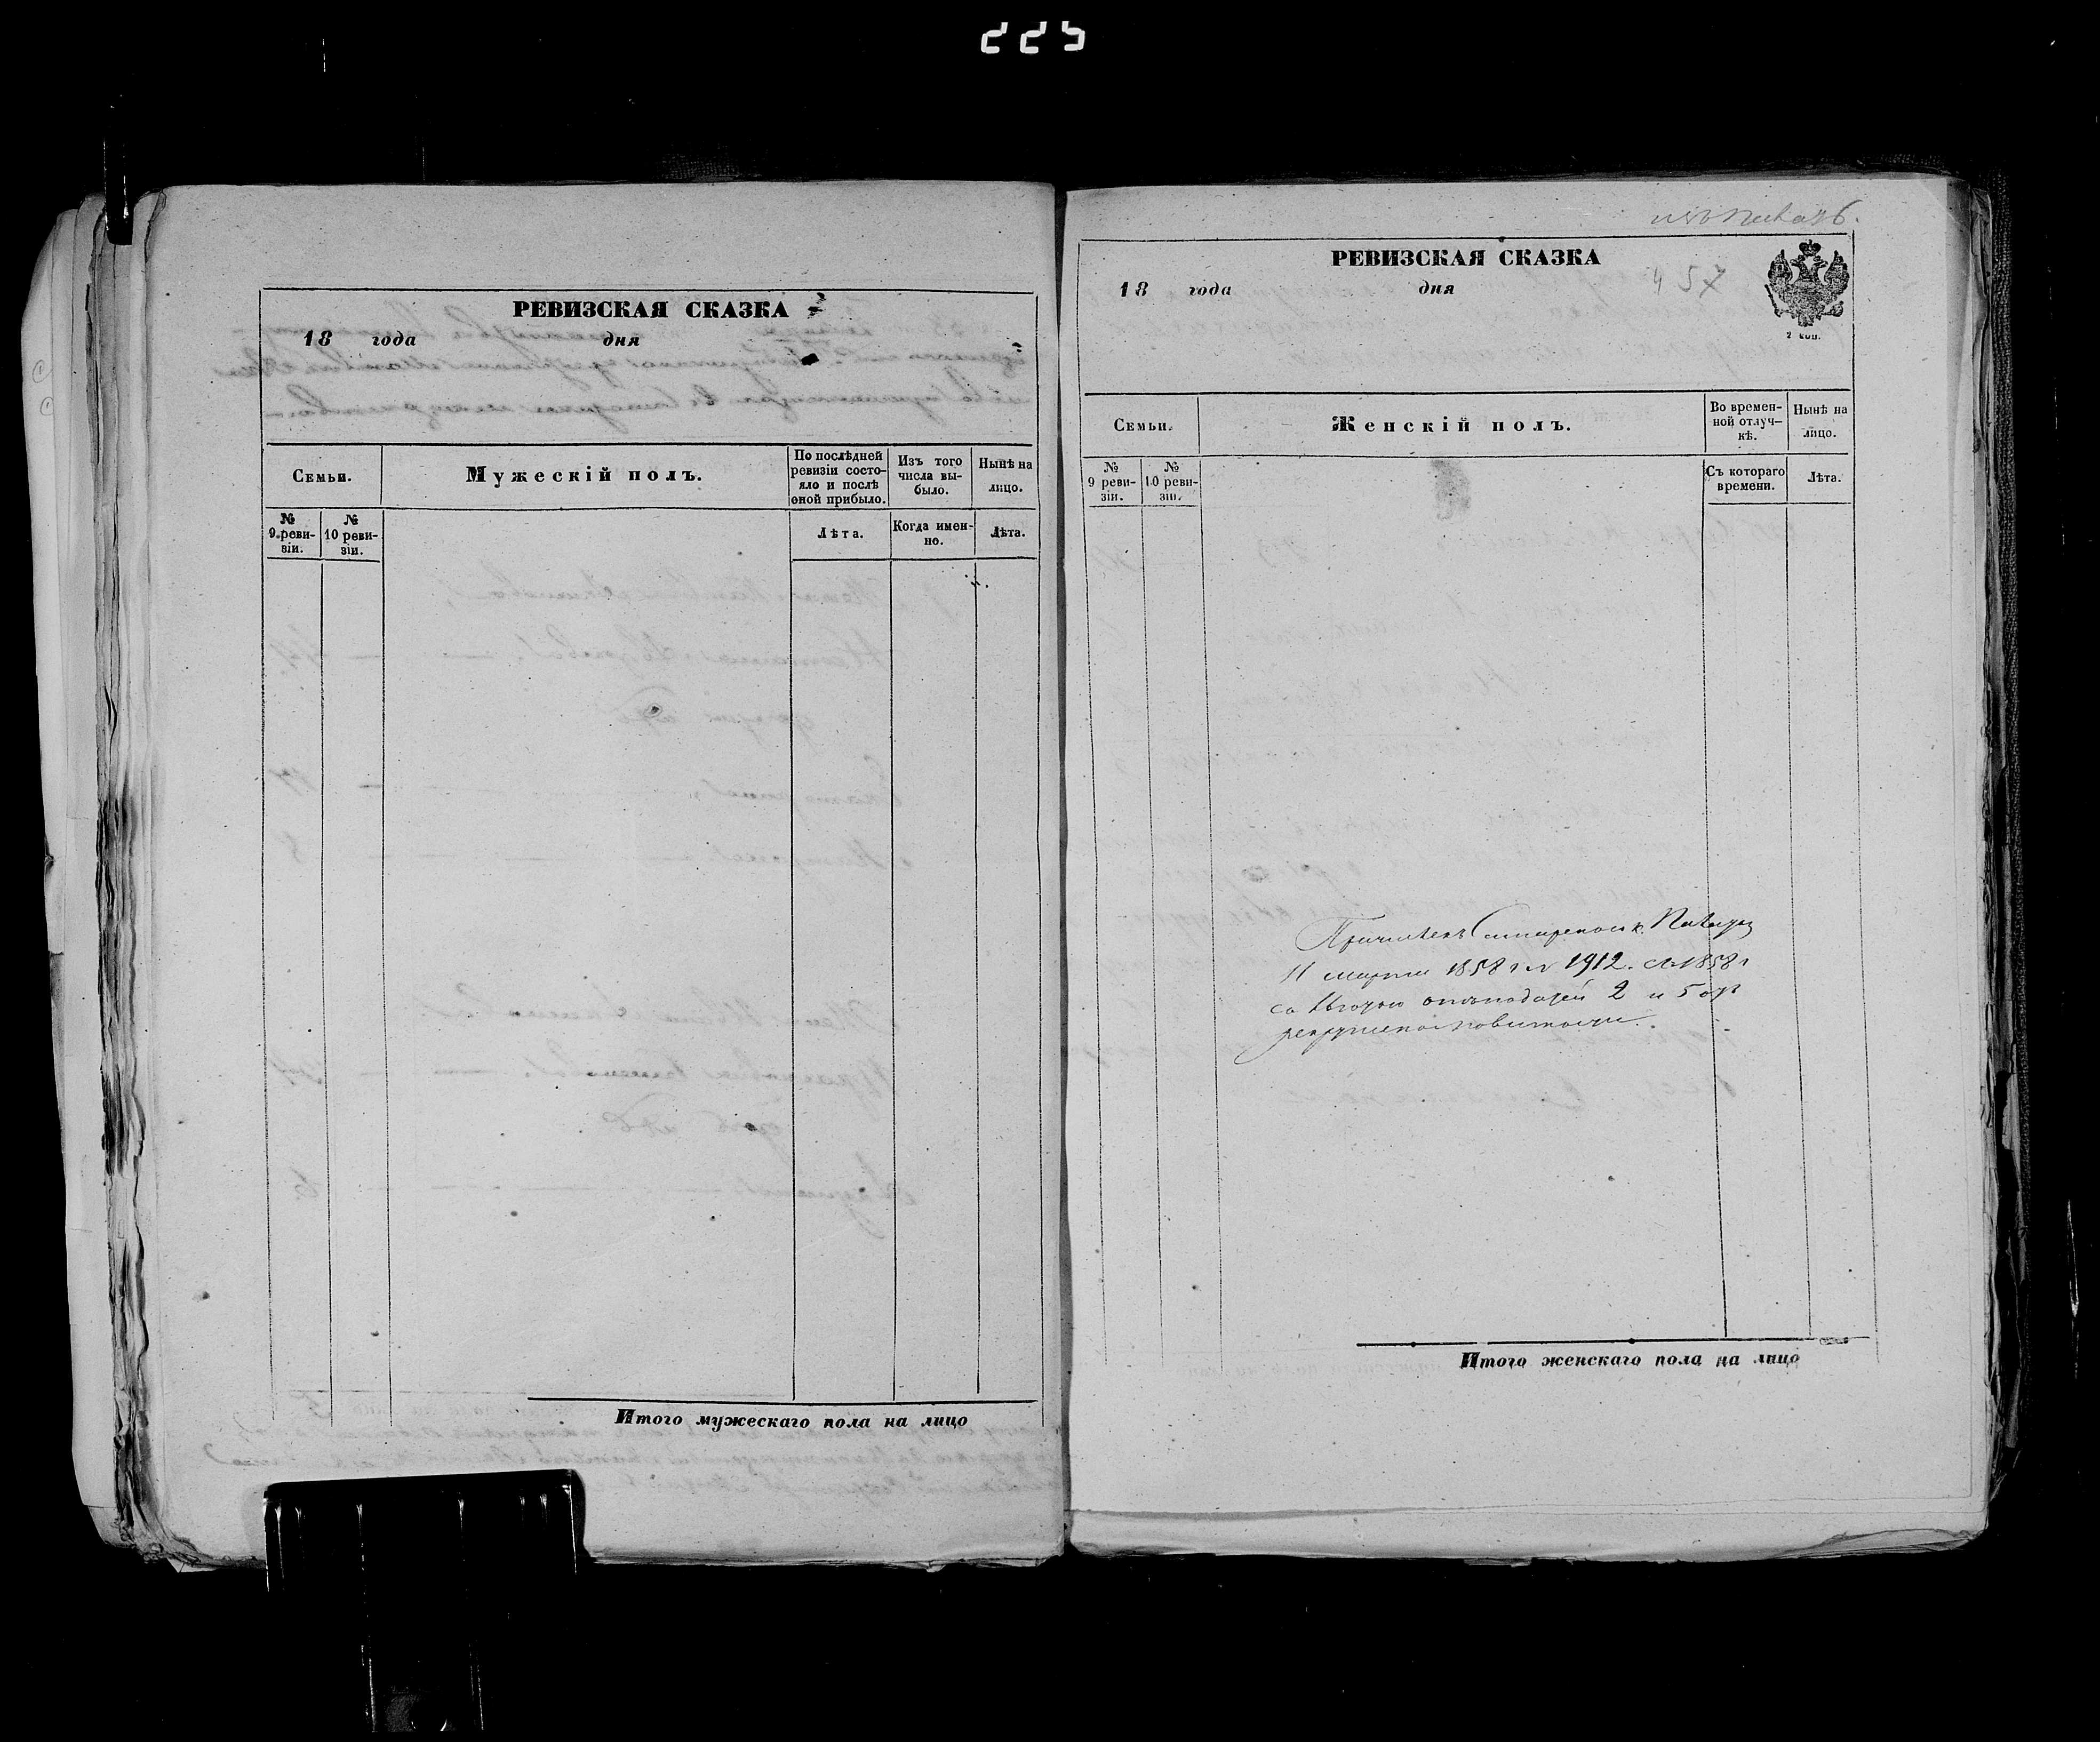 225
РЕВИЗСКАЯ СКАЗКА
18 года дня
Семьи.
Мужескій полъ.
По послѣдней ревизіи состо-
яло и послѣ оной прибыло.
Изъ того числа вы-
было.
Нынѣ на лицо.
№ 9 реви-
зіи.
№ 10 реви-
зіи.
Лѣта.
Когда имен-
но.
Лѣта.
Итого мужескаго пола на лицо
РЕВИЗСКАЯ СКАЗКА
457
18 года дня
2 коп.
Семьи.
Женскій полъ.
Во времен-
ной отлуч-
кѣ.
Нынѣ на
лицо.
№
9 реви-
зіи.
№
10 реви-
зіи.
Съ котораго
времени.
Лѣта.
Причисленъ
11 марта 1858 г. № 1912. съ 1858 г
со льготою отъ податей 2 и 5 отъ
рекрутской повинности.
Итого женскаго пола на лицо